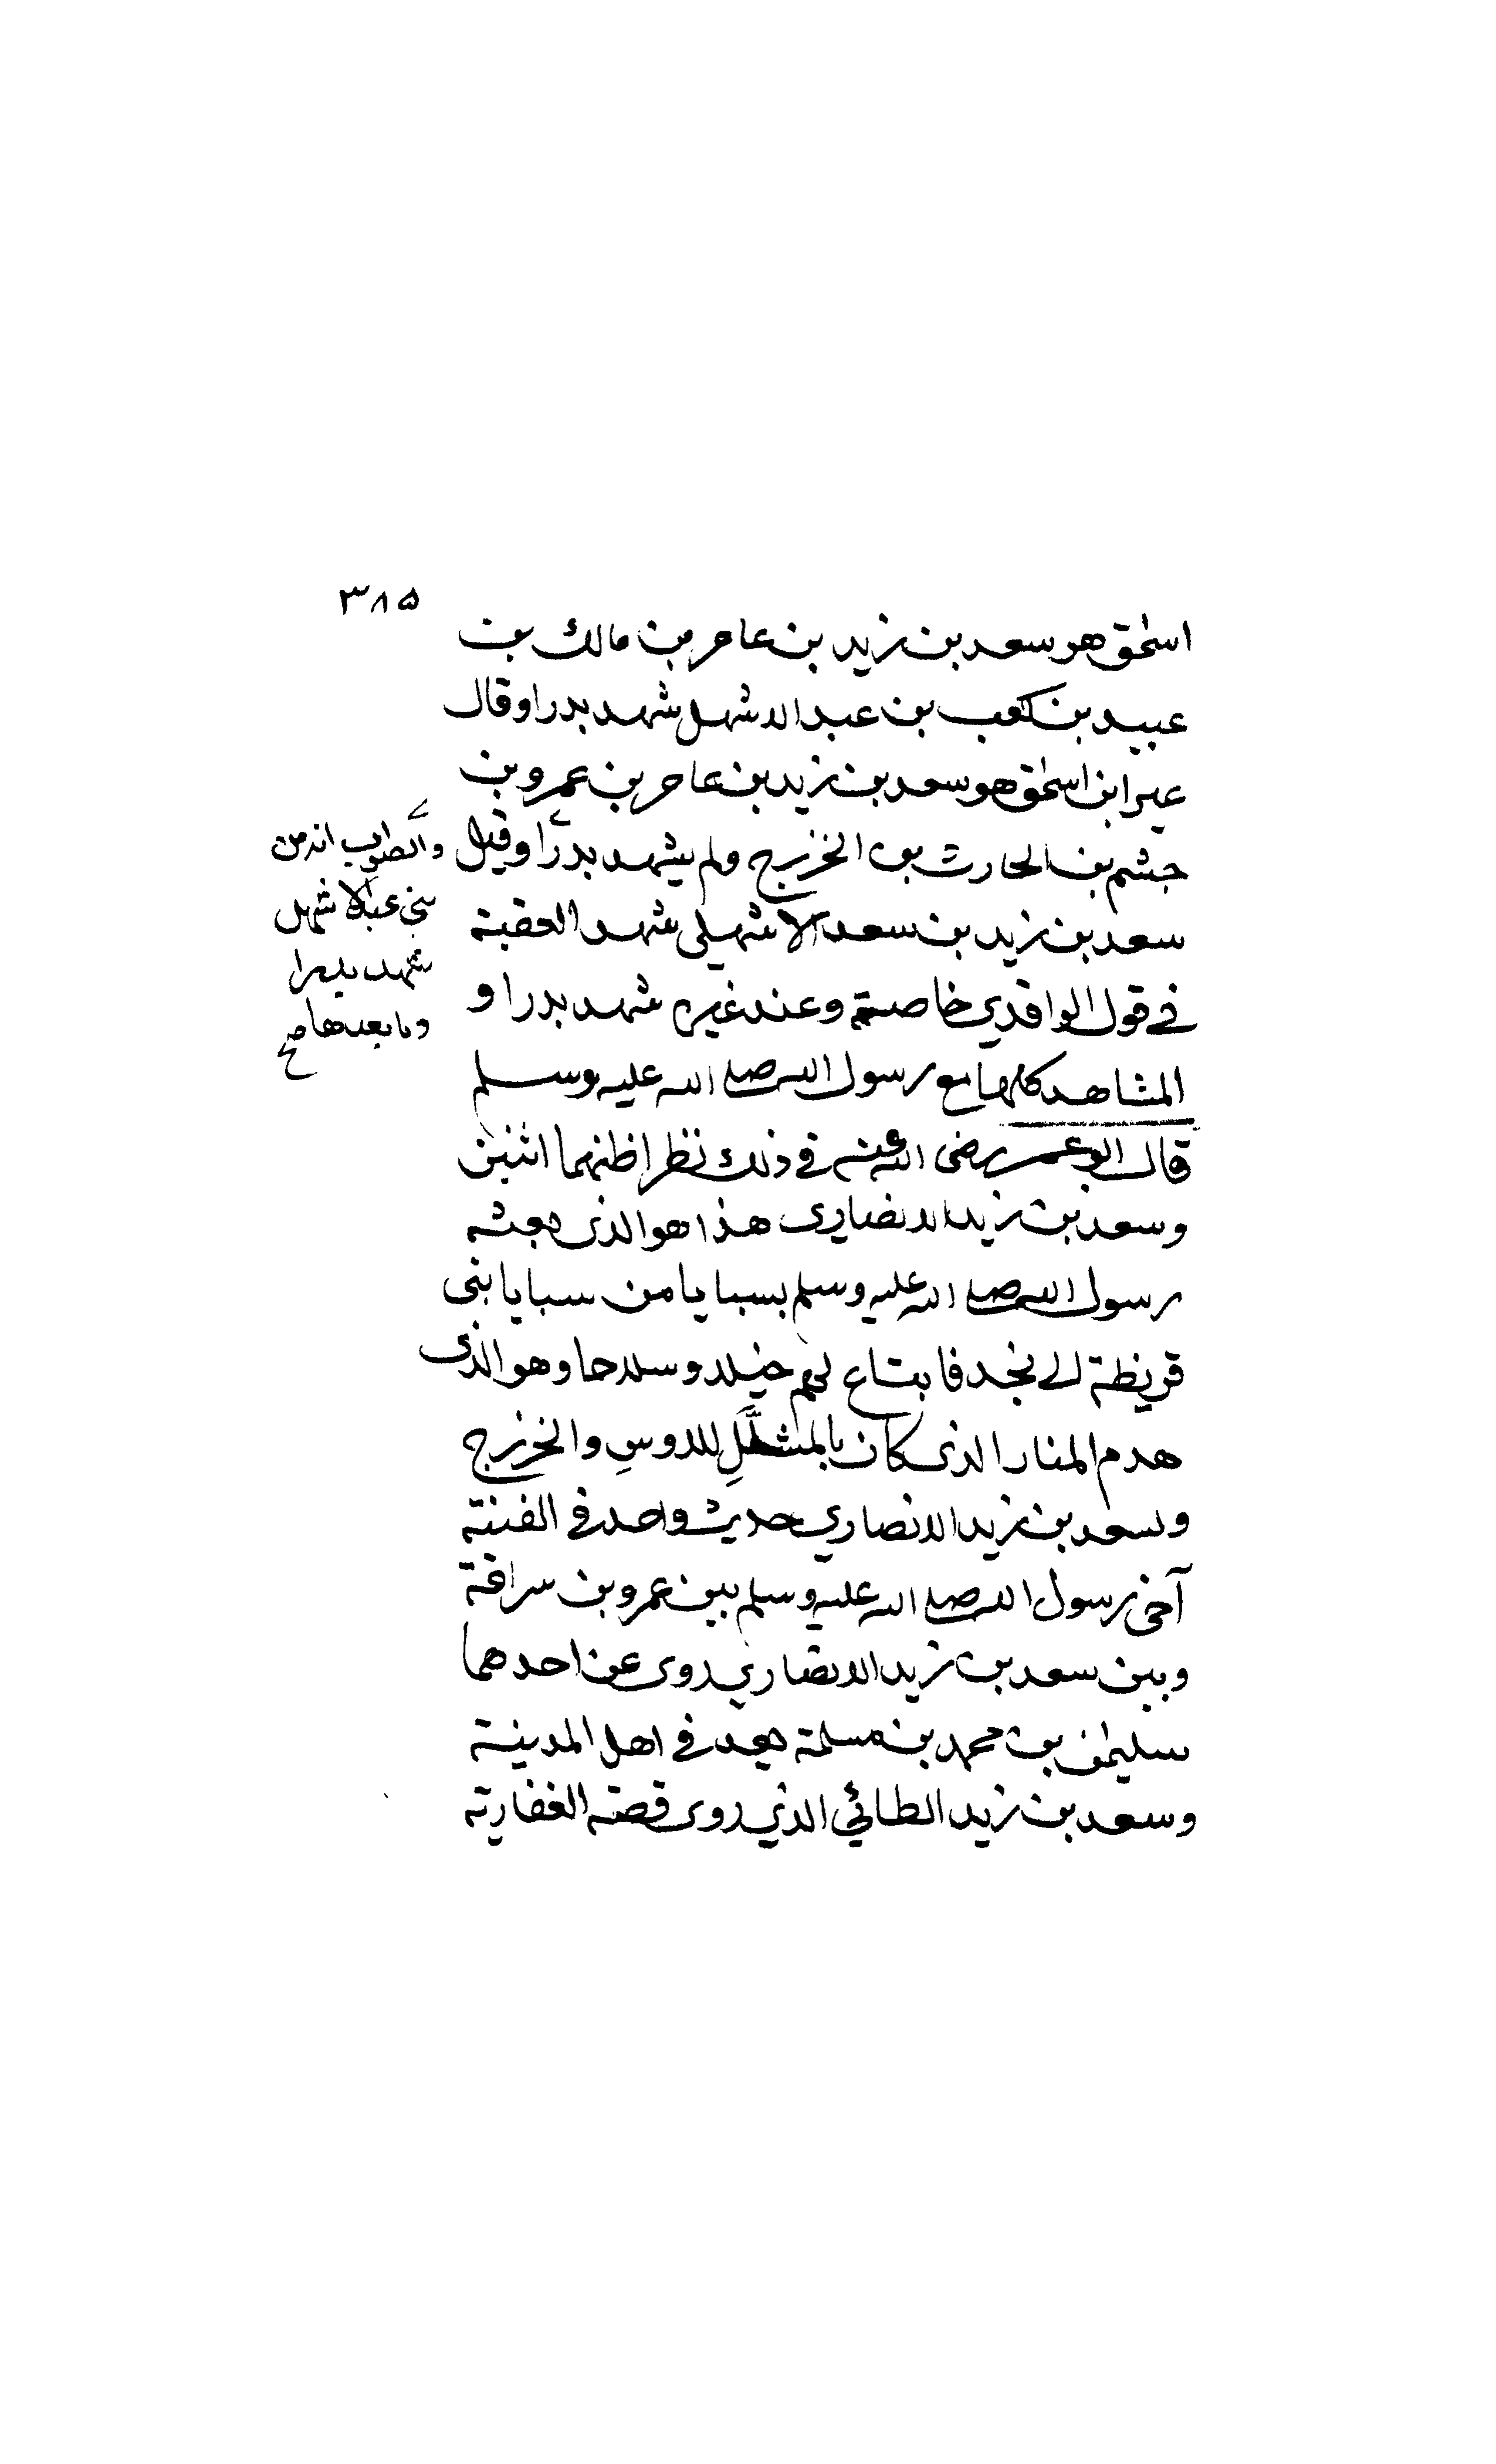 ٣٨٥
اسحٰق هو سعد بن زيد بن عامر بن مالك بن
عبيد بن كعب بن عبد الاشهل شهد بدرا وقال
غير ابن اسحٰق هو سعد بن زيد بن عامر بن عمرو بن
جشم بن الحارث بن الخزرج ولم يشهد بدرًا وقيل
سعد بن زيد بن سعد الاشهلي شهد العقبة
في قول الواقدي خاصة وعند غيره شهد بدرا و
المشاهد كلها مع رسول الله صلى الله عليه وسلم
قال ابو عمر رضى الله عنه في ذلك نظر اظنهما اثنين
وسعد بن زيد الانصارى هذا هو الذى بعثه
رسول الله صلى الله عليه وسلم بسبايا من سبايا بنى
قريظة الى نجد فابتاع لهم خيلا وسلاحا وهو الذى
هدم المنار الذى كان بالمشلَّلِ للاوسِ والخزرج
ولسعد بن زيد الانصاري حديث واحد في الفتنة
آخى رسول الله صلى الله عليه وسلم بين عمرو بن سراقة
وبين سعد بن زيد الانصاري روى عن احدهما
سليمٰن بن محمد بن مسلمة يعد في اهل المدينة
وسعد بن زيد الطائي الذي روى قصة الغفارية
والصواب انه من
بنى عبد الاشهل
شهد بدرا
وما بعدها صح